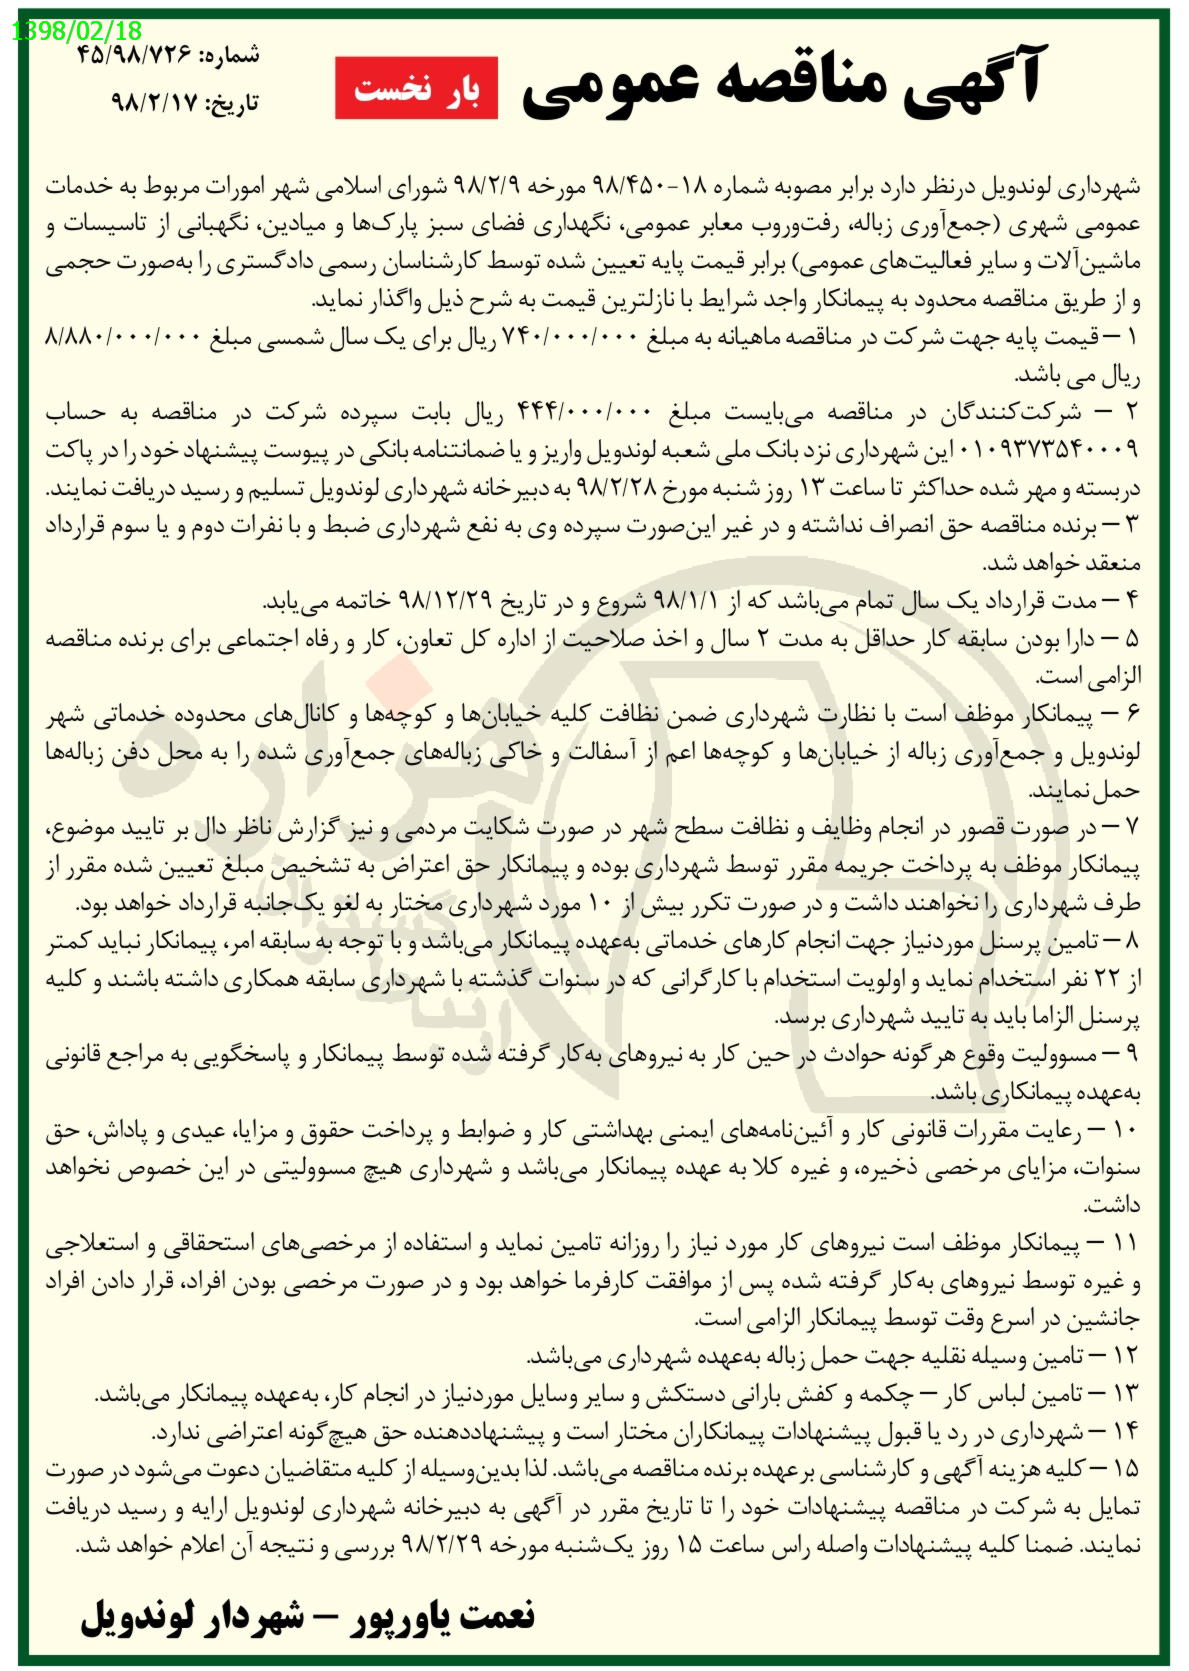 1398/02/18
شماره: ۴۵/۹۸/۷۲۶
تاریخ: ۹۸/۲/۱۷
آگهی مناقصه عمومی
بار نخست
شهرداری لوندویل درنظر دارد برابر مصوبه شماره ۱۸-۹۸/۴۵۰ مورخه ۹۸/۲/۹ شورای اسلامی شهر امورات مربوط به خدمات
عمومی شهری (جمع‌آوری زباله، رفت‌وروب معابر عمومی، نگهداری فضای سبز پارک‌ها و میادین، نگهبانی از تاسیسات و
ماشین‌آلات و سایر فعالیت‌های عمومی) برابر قیمت پایه تعیین شده توسط کارشناسان رسمی دادگستری را به‌صورت حجمی
و از طریق مناقصه محدود به پیمانکار واجد شرایط با نازلترین قیمت به شرح ذیل واگذار نماید.
۱ – قیمت پایه جهت شرکت در مناقصه ماهیانه به مبلغ ۷۴۰/۰۰۰/۰۰۰ ریال برای یک سال شمسی مبلغ ۸/۸۸۰/۰۰۰/۰۰۰
ریال می باشد.
۲ – شرکت‌کنندگان در مناقصه می‌بایست مبلغ ۴۴۴/۰۰۰/۰۰۰ ریال بابت سپرده شرکت در مناقصه به حساب
۰۱۰۹۳۷۳۵۴۰۰۰۹ این شهرداری نزد بانک ملی شعبه لوندویل واریز و یا ضمانتنامه بانکی در پیوست پیشنهاد خود را در پاکت
دربسته و مهر شده حداکثر تا ساعت ۱۳ روز شنبه مورخ ۹۸/۲/۲۸ به دبیرخانه شهرداری لوندویل تسلیم و رسید دریافت نمایند.
۳ – برنده مناقصه حق انصراف نداشته و در غیر این‌صورت سپرده وی به نفع شهرداری ضبط و با نفرات دوم و یا سوم قرارداد
منعقد خواهد شد.
۴ – مدت قرارداد یک سال تمام می‌باشد که از ۹۸/۱/۱ شروع و در تاریخ ۹۸/۱۲/۲۹ خاتمه می‌یابد.
۵ – دارا بودن سابقه کار حداقل به مدت ۲ سال و اخذ صلاحیت از اداره کل تعاون، کار و رفاه اجتماعی برای برنده مناقصه
الزامی است.
۶ – پیمانکار موظف است با نظارت شهرداری ضمن نظافت کلیه خیابان‌ها و کوچه‌ها و کانال‌های محدوده خدماتی شهر
لوندویل و جمع‌آوری زباله از خیابان‌ها و کوچه‌ها اعم از آسفالت و خاکی زباله‌های جمع‌آوری شده را به محل دفن زباله‌ها
حمل نمایند.
۷ – در صورت قصور در انجام وظایف و نظافت سطح شهر در صورت شکایت مردمی و نیز گزارش ناظر دال بر تایید موضوع،
پیمانکار موظف به پرداخت جریمه مقرر توسط شهرداری بوده و پیمانکار حق اعتراض به تشخیص مبلغ تعیین شده مقرر از
طرف شهرداری را نخواهند داشت و در صورت تکرر بیش از ۱۰ مورد شهرداری مختار به لغو یک‌جانبه قرارداد خواهد بود.
۸ – تامین پرسنل موردنیاز جهت انجام کارهای خدماتی به‌عهده پیمانکار می‌باشد و با توجه به سابقه امر، پیمانکار نباید کمتر
از ۲۲ نفر استخدام نماید و اولویت استخدام با کارگرانی که در سنوات گذشته با شهرداری سابقه همکاری داشته باشند و کلیه
پرسنل الزاما باید به تایید شهرداری برسد.
۹ – مسوولیت وقوع هرگونه حوادث در حین کار به نیروهای به‌کار گرفته شده توسط پیمانکار و پاسخگویی به مراجع قانونی
به‌عهده پیمانکاری باشد.
۱۰ – رعایت مقررات قانونی کار و آئین‌نامه‌های ایمنی بهداشتی کار و ضوابط و پرداخت حقوق و مزایا، عیدی و پاداش، حق
سنوات، مزایای مرخصی ذخیره، و غیره کلا به عهده پیمانکار می‌باشد و شهرداری هیچ مسوولیتی در این خصوص نخواهد
داشت.
۱۱ – پیمانکار موظف است نیروهای کار مورد نیاز را روزانه تامین نماید و استفاده از مرخصی‌های استحقاقی و استعلاجی
و غیره توسط نیروهای به‌کار گرفته شده پس از موافقت کارفرما خواهد بود و در صورت مرخصی بودن افراد، قرار دادن افراد
جانشین در اسرع وقت توسط پیمانکار الزامی است.
۱۲ – تامین وسیله نقلیه جهت حمل زباله به‌عهده شهرداری می‌باشد.
۱۳ – تامین لباس کار – چکمه و کفش بارانی دستکش و سایر وسایل موردنیاز در انجام کار، به‌عهده پیمانکار می‌باشد.
۱۴ – شهرداری در رد یا قبول پیشنهادات پیمانکاران مختار است و پیشنهاددهنده حق هیچ‌گونه اعتراضی ندارد.
۱۵ – کلیه هزینه آگهی و کارشناسی برعهده برنده مناقصه می‌باشد. لذا بدین‌وسیله از کلیه متقاضیان دعوت می‌شود در صورت
تمایل به شرکت در مناقصه پیشنهادات خود را تا تاریخ مقرر در آگهی به دبیرخانه شهرداری لوندویل ارایه و رسید دریافت
نمایند. ضمنا کلیه پیشنهادات واصله راس ساعت ۱۵ روز یک‌شنبه مورخه ۹۸/۲/۲۹ بررسی و نتیجه آن اعلام خواهد شد.
نعمت یاورپور – شهردار لوندویل
هزاره